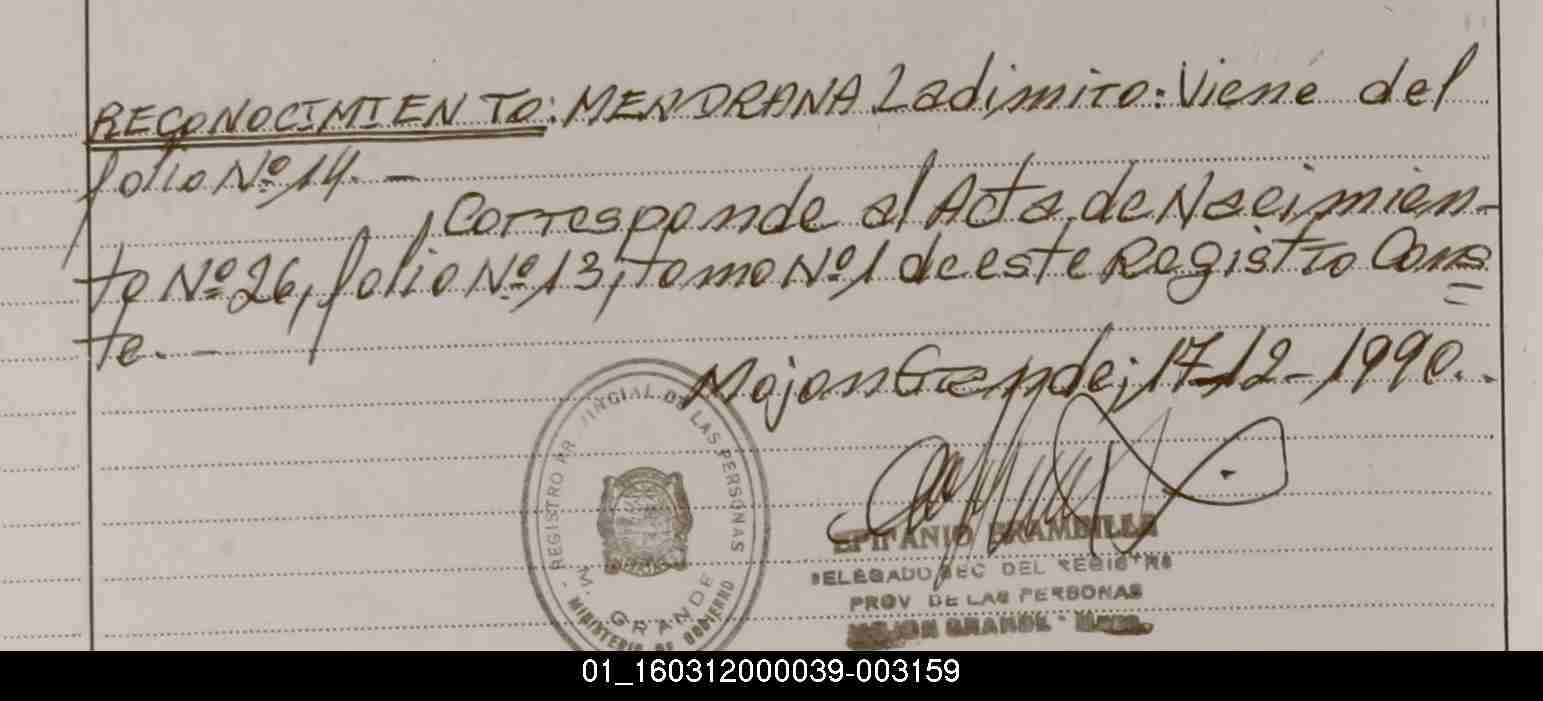 RECONOCIMIENTO: MENDRANA Ladimiro: Viene del
folio Nº 14. -
Corresponde al Acta de Nacimien-
to Nº 26, folio Nº 13, tomo Nº 1 de este Registro Cons
te. -
Mojon Grande; 17-12-1990.
REGISTRO PROVINCIAL DE LAS PERSONAS
M. GRANDE
MINISTERIO DE GOBIERNO
EPIFANIO BRAMBILLA
DELEGADO SEC DEL REGISTRO
PROV DE LAS PERSONAS
MOJON GRANDE - Mnes.
01_160312000039-003159